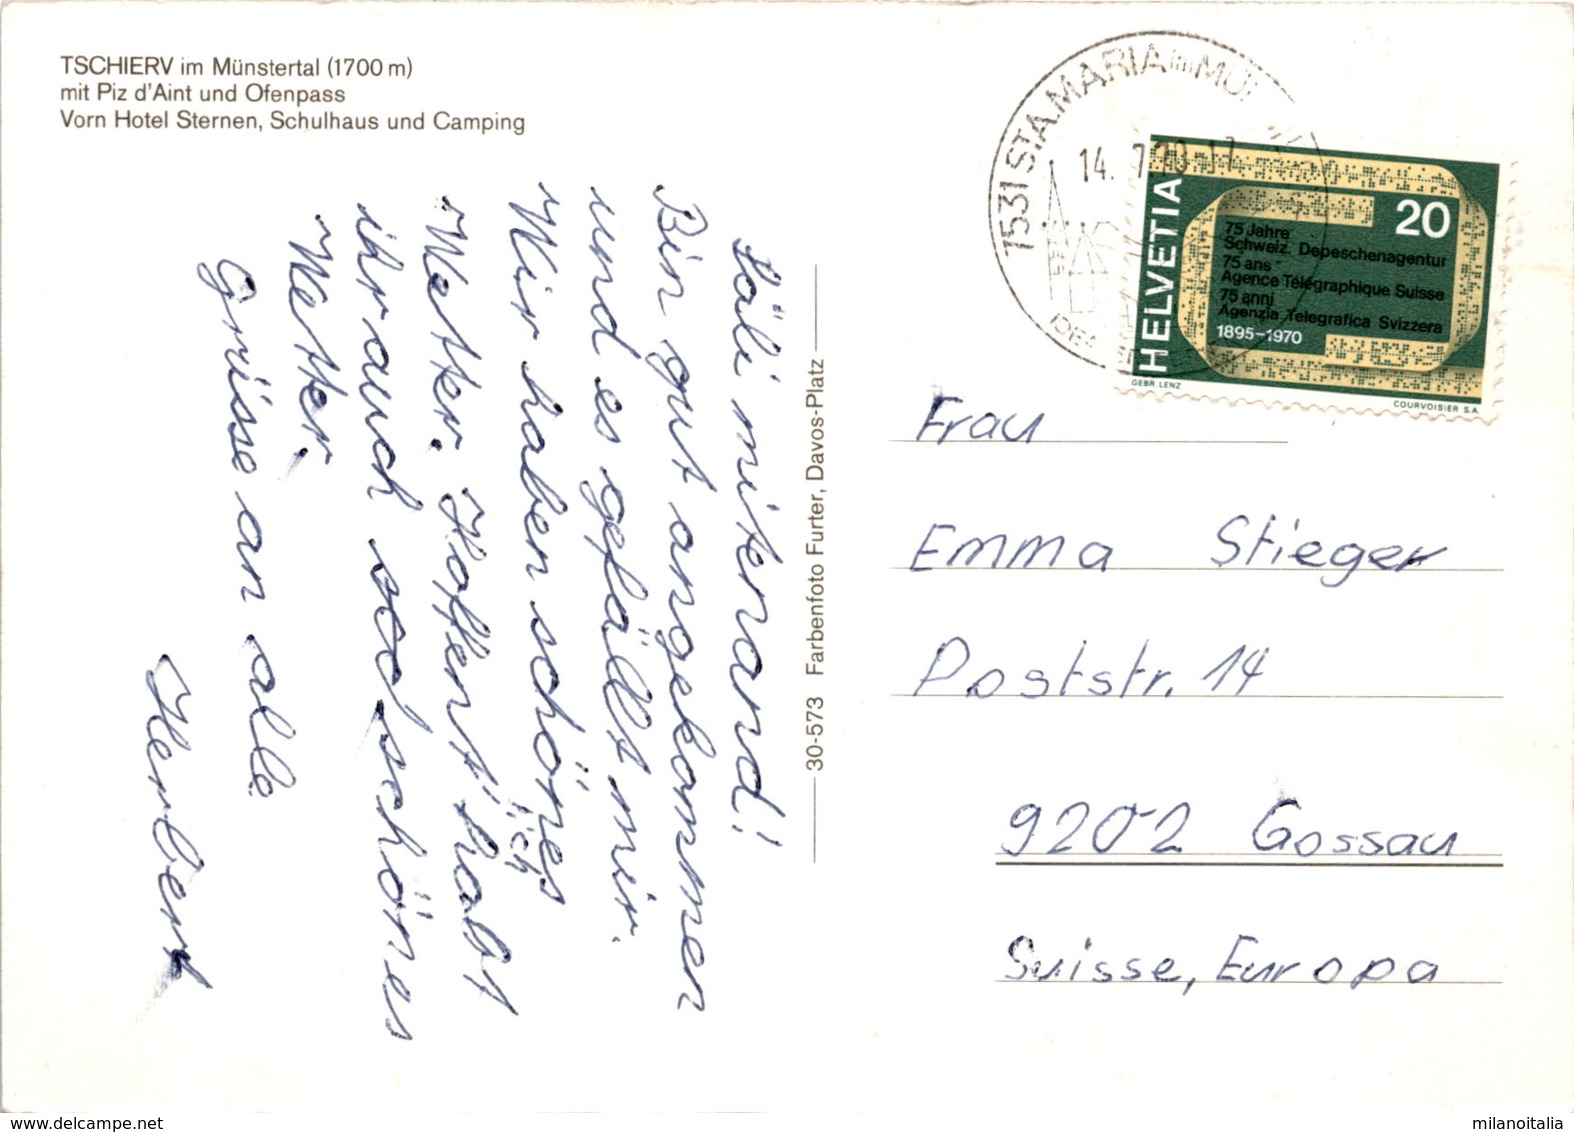 TSCHIERV im Münstertal (1700 m)
mit Piz d'Aint und Ofenpass
Vorn Hotel Sternen, Schulhaus und Camping
Säli mitenand!
Bin gut angekommen
und es gefällt mir.
Wir haben schönes
Wetter. Hoffent'lich habt
ihr auch so schönes
Wetter.
Grüsse an alle
Herbert
30-573 Farbenfoto Furter, Davos-Platz
7531 STA. MARIA im MÜ
14. 7.70-17
HELVETIA
20
75 Jahre
Schweiz. Depeschenagentur
75 ans
Agence Télégraphique Suisse
75 anni
Agenzia Telegrafica Svizzera
1895-1970
GEBR. LENZ
COURVOISIER S.A.
Frau
Emma Stieger
Poststr. 14
9202 Gossau
Suisse, Europa
milanoitalia